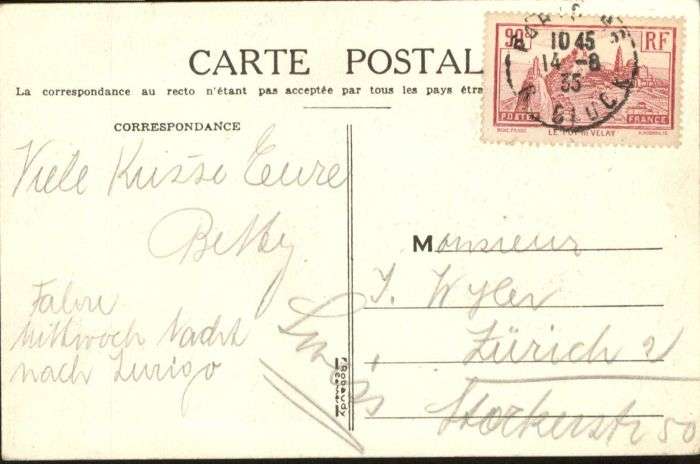 CARTE POSTALE
La correspondance au recto n'étant pas acceptée par tous les pays étra
CORRESPONDANCE
Viele Küsse Eure
Betty
Fahre
Mittwoch Nacht
nach Zurigo
90
RF
10 45
14 - 8
35
R. GLUCK
POSTES
FRANCE
LE PUY EN VELAY
Monsieur
J. Wyler
Zürich 2
Stockerstr 50